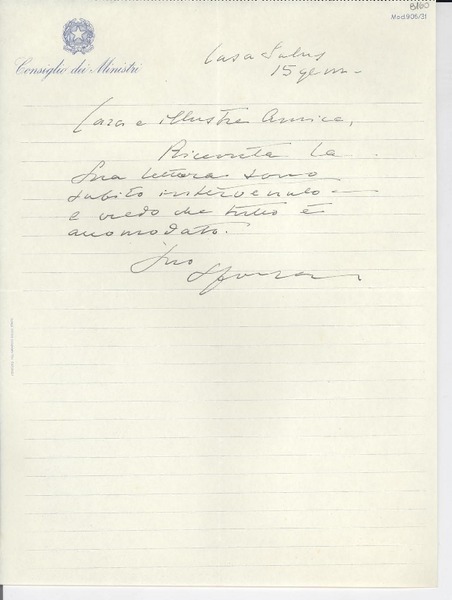 Consiglio dei Ministri
Casa Salus
15 genn.
Cara e illustre Amica,
Ricevuta la
Sua lettera sono
subito intervenuto –
e credo che tutto è
accomodato.
Suo
Sforza